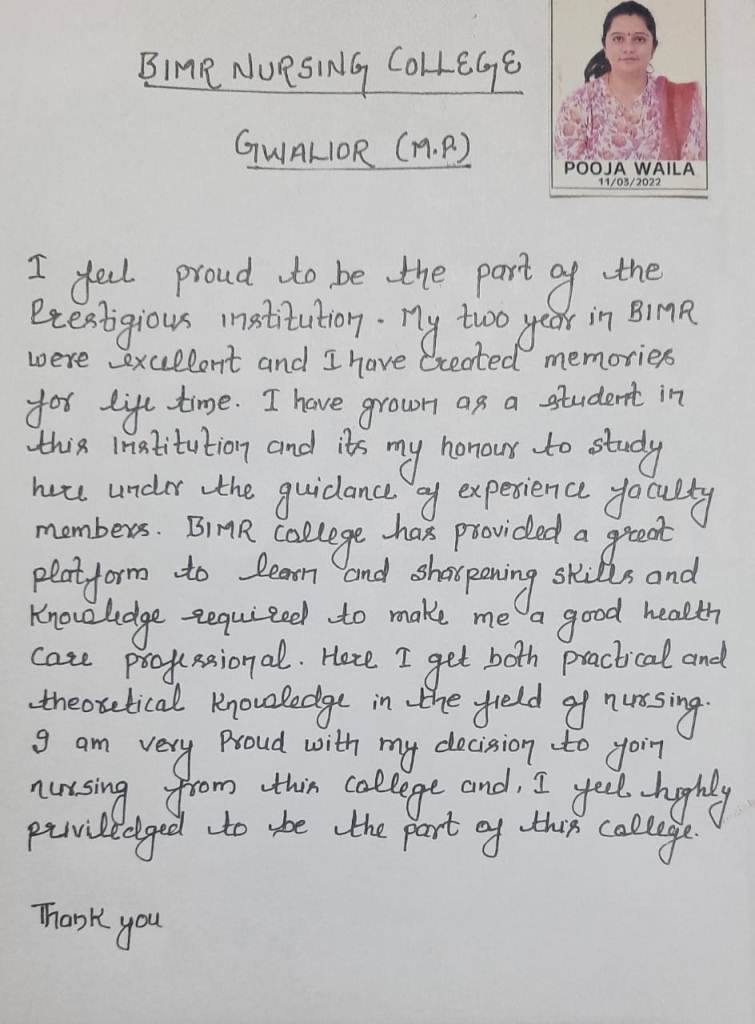 BIMR NURSING COLLEGE
GWALIOR (M.P.)
POOJA WAILA
11/03/2022
I feel proud to be the part of the
Prestigious institution. My two year in BIMR
were excellent and I have created memories
for life time. I have grown as a student in
this institution and its my honour to study
here under the guidance of experience faculty
members. BIMR college has provided a great
platform to learn and sharpening skills and
Knowledge required to make me a good health
Care professional. Here I get both practical and
theoretical knowledge in the field of nursing.
I am very Proud with my decision to join
nursing from this college and, I feel highly
priviledged to be the part of this college.
Thank you